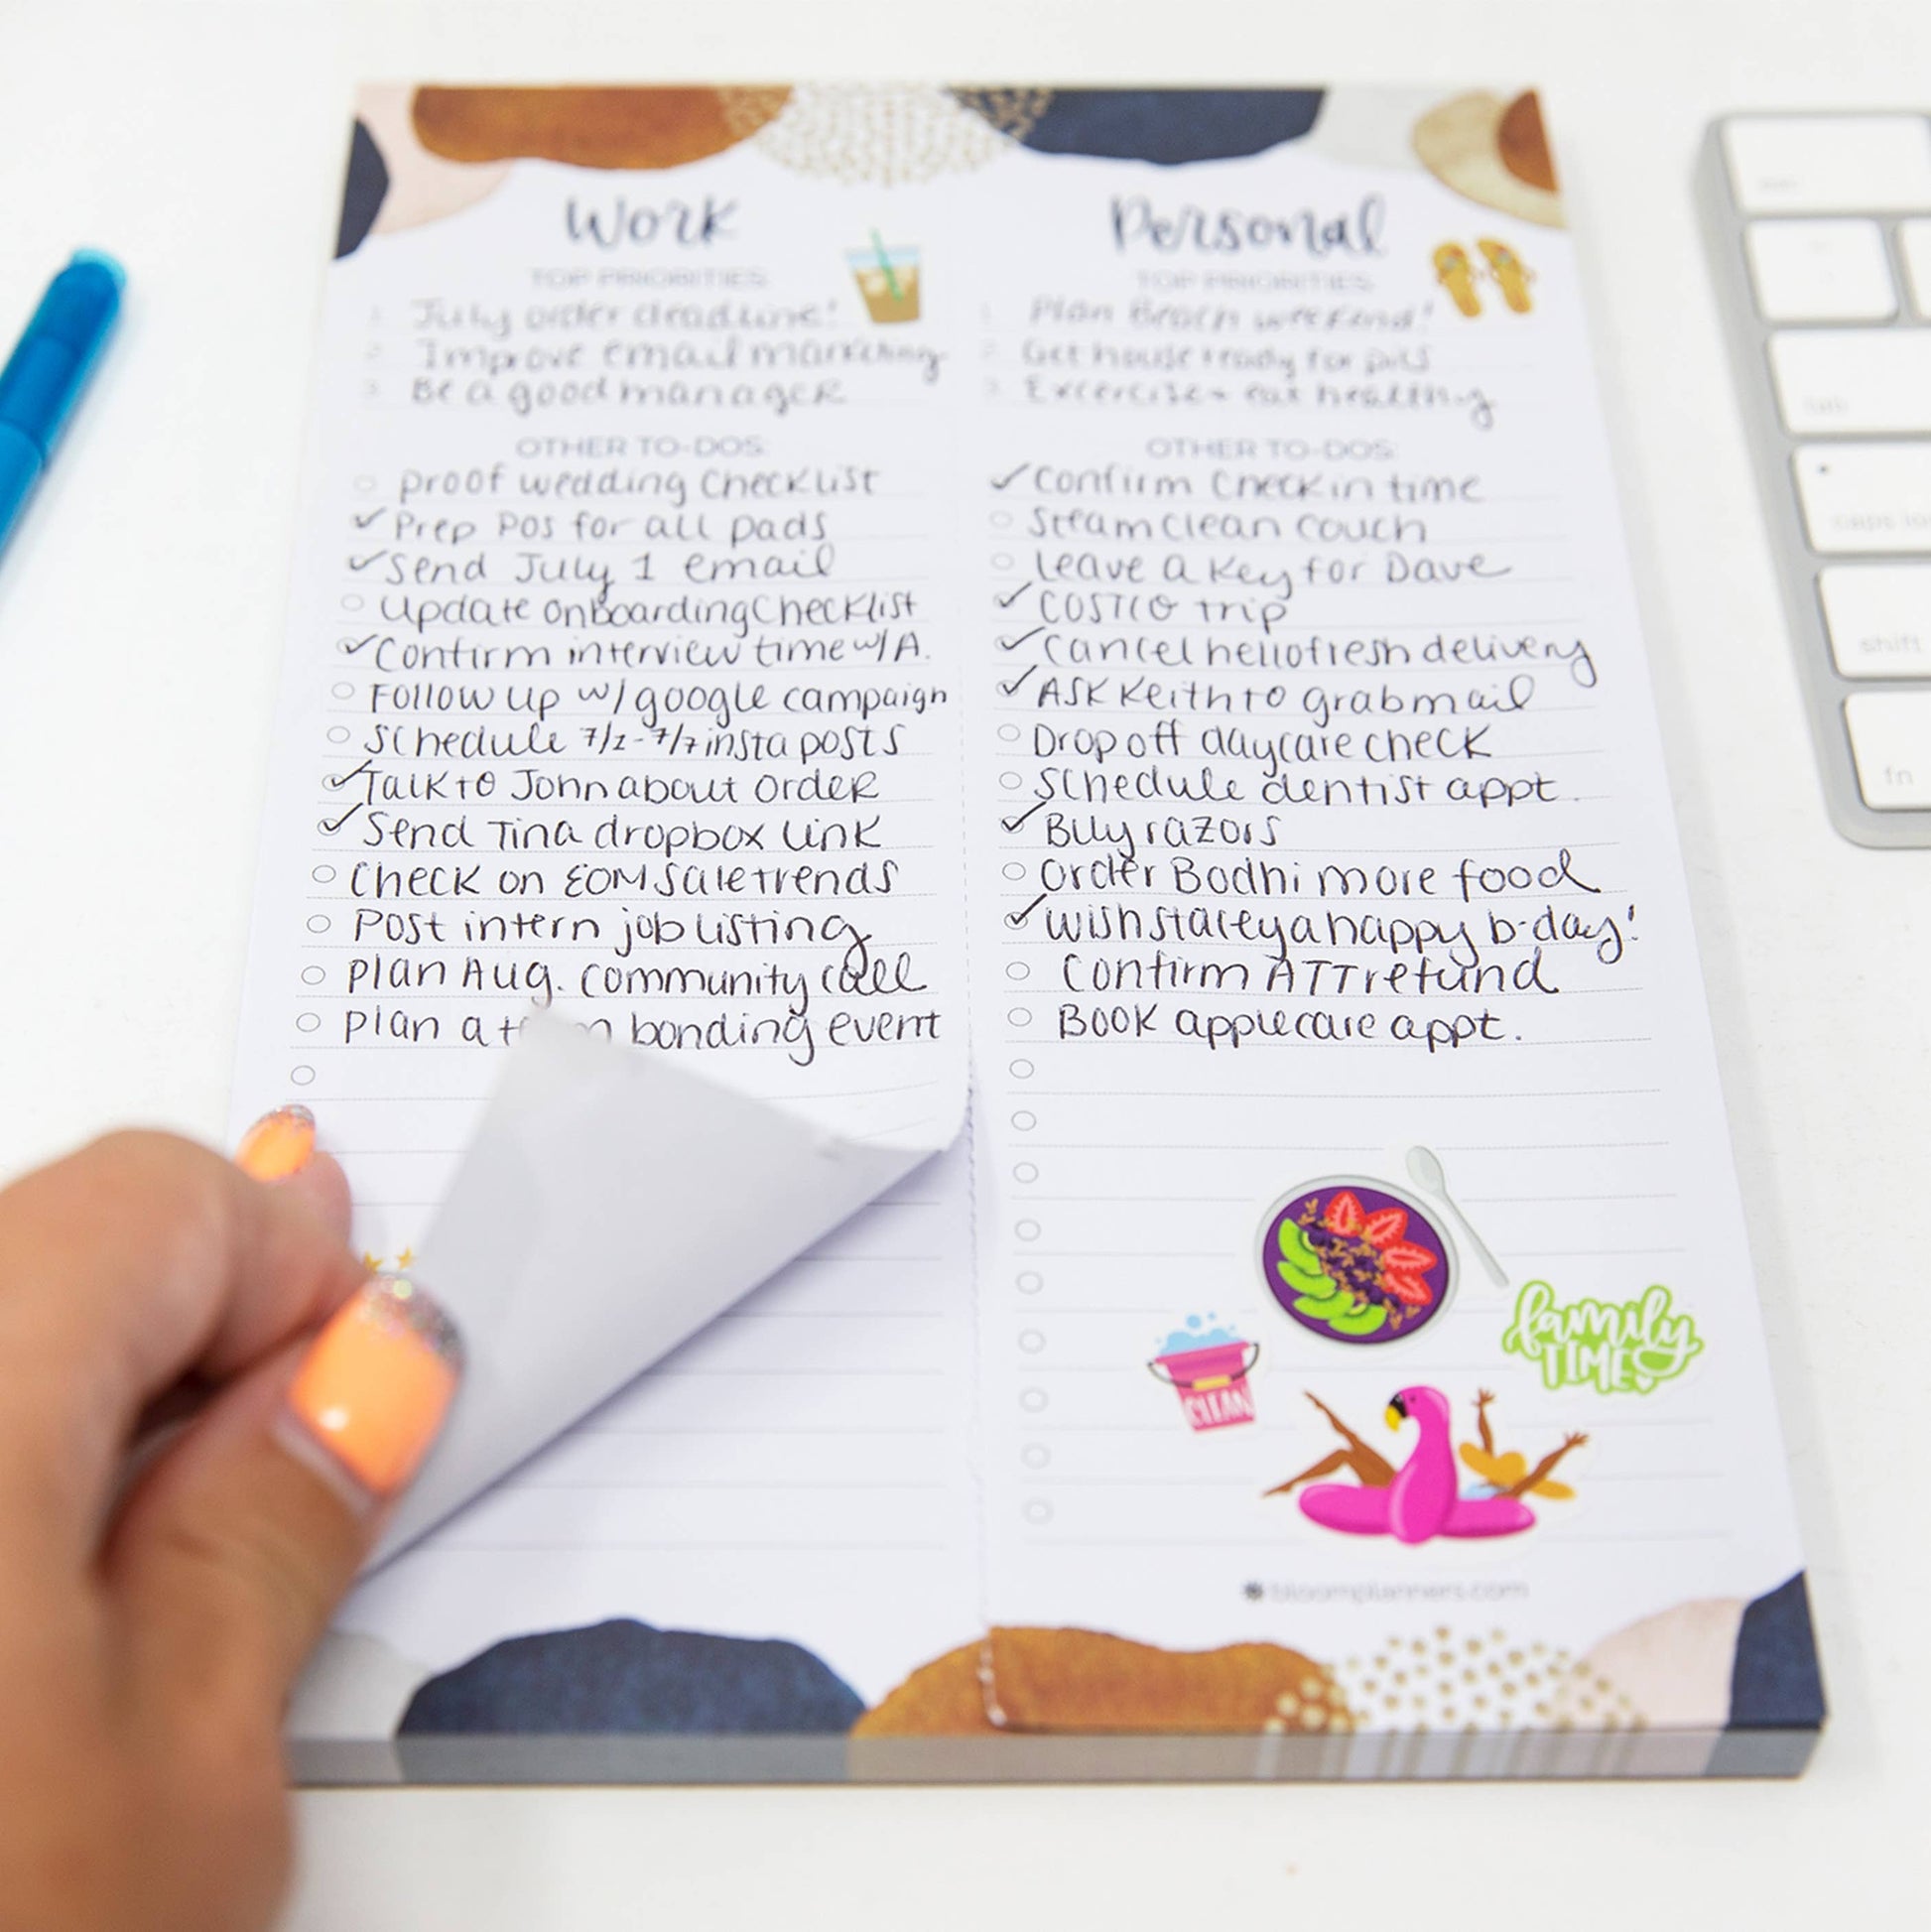 Work
TOP PRIORITIES:
1. July order deadline!
2. Improve email marketing
3. Be a good manager
OTHER TO-DOS:
Proof wedding Checklist
Prep POs for all pads
Send July 1 email
Update onboarding Checklist
Confirm interview time w/ A.
Follow up w/ google campaign
Schedule 7/1-7/7 insta posts
Talk to John about order
Send Tina dropbox link
Check on EOM sale trends
Post intern job listing
Plan Aug. community call
Plan a bonding event
Personal
TOP PRIORITIES:
1. Plan Beach weekend!
2. Get house ready for
3. Excercise + eat healthy
OTHER TO-DOS:
Confirm Check in time
Steam clean couch
Leave a key for Dave
COSTCO trip
Cancel hellofresh delivery
ASK Keith to grab mail
Drop off daycare check
Schedule dentist appt.
Buy razors
Order Bodhi more food
Wish Stacey a happy b-day!
Confirm ATT refund
Book applecare appt.
family
TIME
CLEAN
bloomplanners.com
caps lo
shift
fn
tab